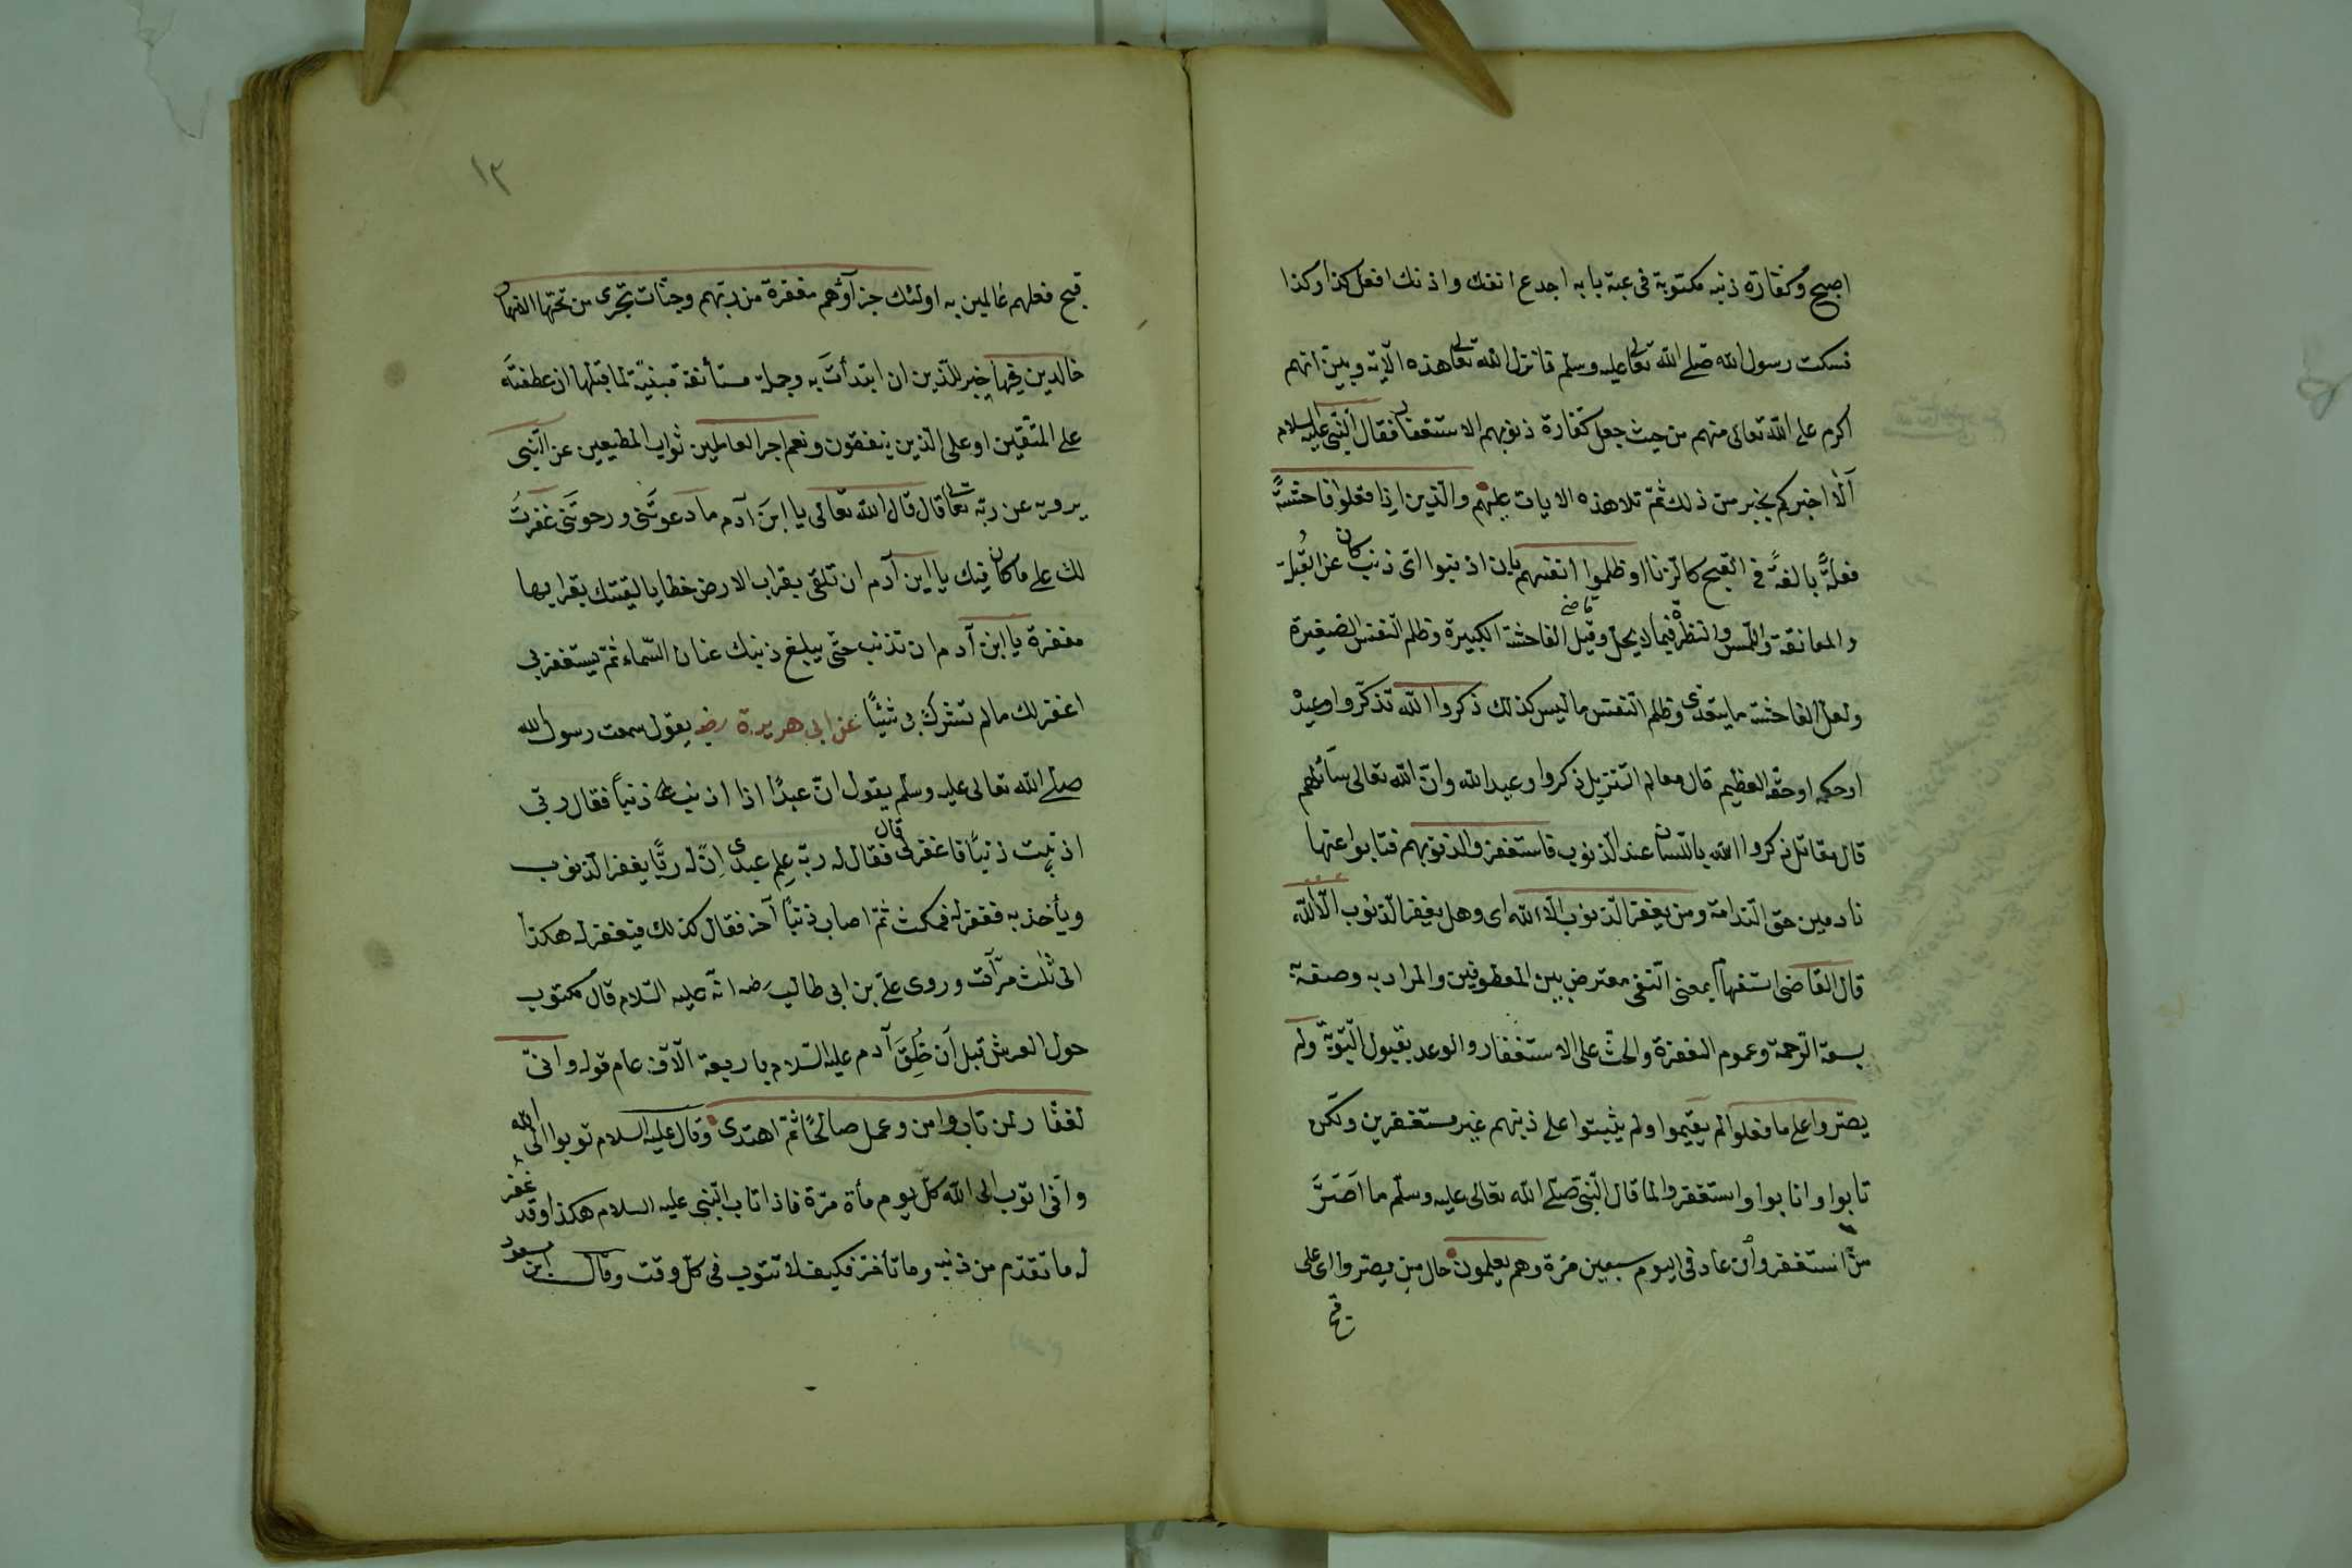 اصبح وكفارة ذنبه مكتوبة فى عتبة بابه اجدع انفك واذنك افعل كذا وكذا
فسكت رسول الله صلى الله تعالى عليه وسلم فانزل الله تعالى هذه الآية وبين انهم
اكرم على الله تعالى منهم من حيث جعل كفارة ذنوبهم الاستغفار فقال النبى عليه السلام
ألا اخبركم بخير من ذلك ثم تلا هذه الايات عليهم والذين اذا فعلوا فاحشة
فعلة بالغة فى القبح كالزنا او ظلموا انفسهم بان اذنبوا اى ذنب كان عن القبلة
والمعانقة واللمس والنظرة فيما لا يحل وقيل الفاحشة الكبيرة وظلم النفس الصغيرة
قاضى
ولعل الفاحشة ما يتعدى وظلم النفس ما ليس كذلك ذكروا الله تذكروا وعيده
او حكمه او حقه العظيم قال معالم التنزيل ذكروا وعيد الله وان الله تعالى سائلهم
قال مقاتل ذكروا الله باللسان عند الذنوب فاستغفروا لذنوبهم فتابوا عنها
نادمين حق الندامة ومن يغفر الذنوب الا الله اى وهل يغفر الذنوب الا الله
قال القاضى استفهام بمعنى النفى معترض بين المعطوفين والمراد به وصفه
بسعة الرحمة وعموم المغفرة والحث على الاستغفار والوعد بقبول التوبة ولم
يصروا على ما فعلوا لم يقيموا ولم يثبتوا على ذنبهم غير مستغفرين ولكن
تابوا وانابوا واستغفروا لما قال النبى صلى الله تعالى عليه وسلم ما اصر
من استغفر وان عاد فى اليوم سبعين مرة وهم يعلمون حال من يصروا اى على
قبح
١٣
قبح فعلهم عالمين به اولئك جزاؤهم مغفرة من ربهم وجنات تجرى من تحتها الانهار
خالدين فيها خبر للذين ان ابتدأت به وجملة مستأنفة مبنية لما قبلها ان عطفته
على المتقين او على الذين ينفقون ونعم اجر العاملين ثواب المطيعين عن النبى
يرويه عن ربه تعالى قال قال الله تعالى يا ابن آدم ما دعوتنى ورجوتنى غفرت
لك على ما كان فيك يا ابن آدم ان تلقى بقراب الارض خطايا لقيتك بقرابها
مغفرة يا ابن آدم ان تذنب حتى يبلغ ذنبك عنان السماء ثم يستغفر بى
اغفر لك ما لم تشرك بى شيئا عن ابى هريرة رضه يقول سمعت رسول الله
صلى الله تعالى عليه وسلم يقول ان عبدا اذا اذنب ذنبا فقال ربى
اذنبت ذنبا فاغفر لى قال فقال له ربه علم عبدى ان له ربا يغفر الذنوب
ويأخذ به فغفر له فمكث ثم اصاب ذنبا آخر فقال كذلك فيغفر له هكذا
الى ثلث مرات وروى على بن ابى طالب رضه انه عليه السلام قال مكتوب
حول العرش قبل ان خلق آدم عليه السلام باربعة آلاف عام قوله وانى
لغفار لمن تاب وامن وعمل صالحا ثم اهتدى وقال عليه السلام توبوا الى الله
وانى اتوب الى الله كل يوم مأة مرة فاذا تاب النبى عليه السلام هكذا وقد غفر
له ما تقدم من ذنبه وما تأخر فكيف لا تتوب فى كل وقت وقال ابن مسعود